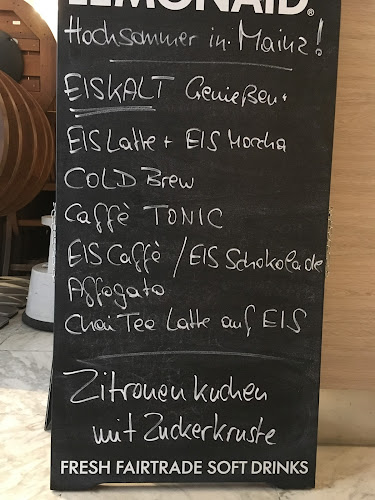 LEMONAID®
Hochsommer in Mainz!
EISKALT Genießen
EIS Latte + EIS Mocha
COLD Brew
Caffè TONIC
EIS Caffè / EIS Schokolade
Affogato
Chai Tea Latte auf EIS
Zitronenkuchen
mit Zuckerkruste
FRESH FAIRTRADE SOFT DRINKS